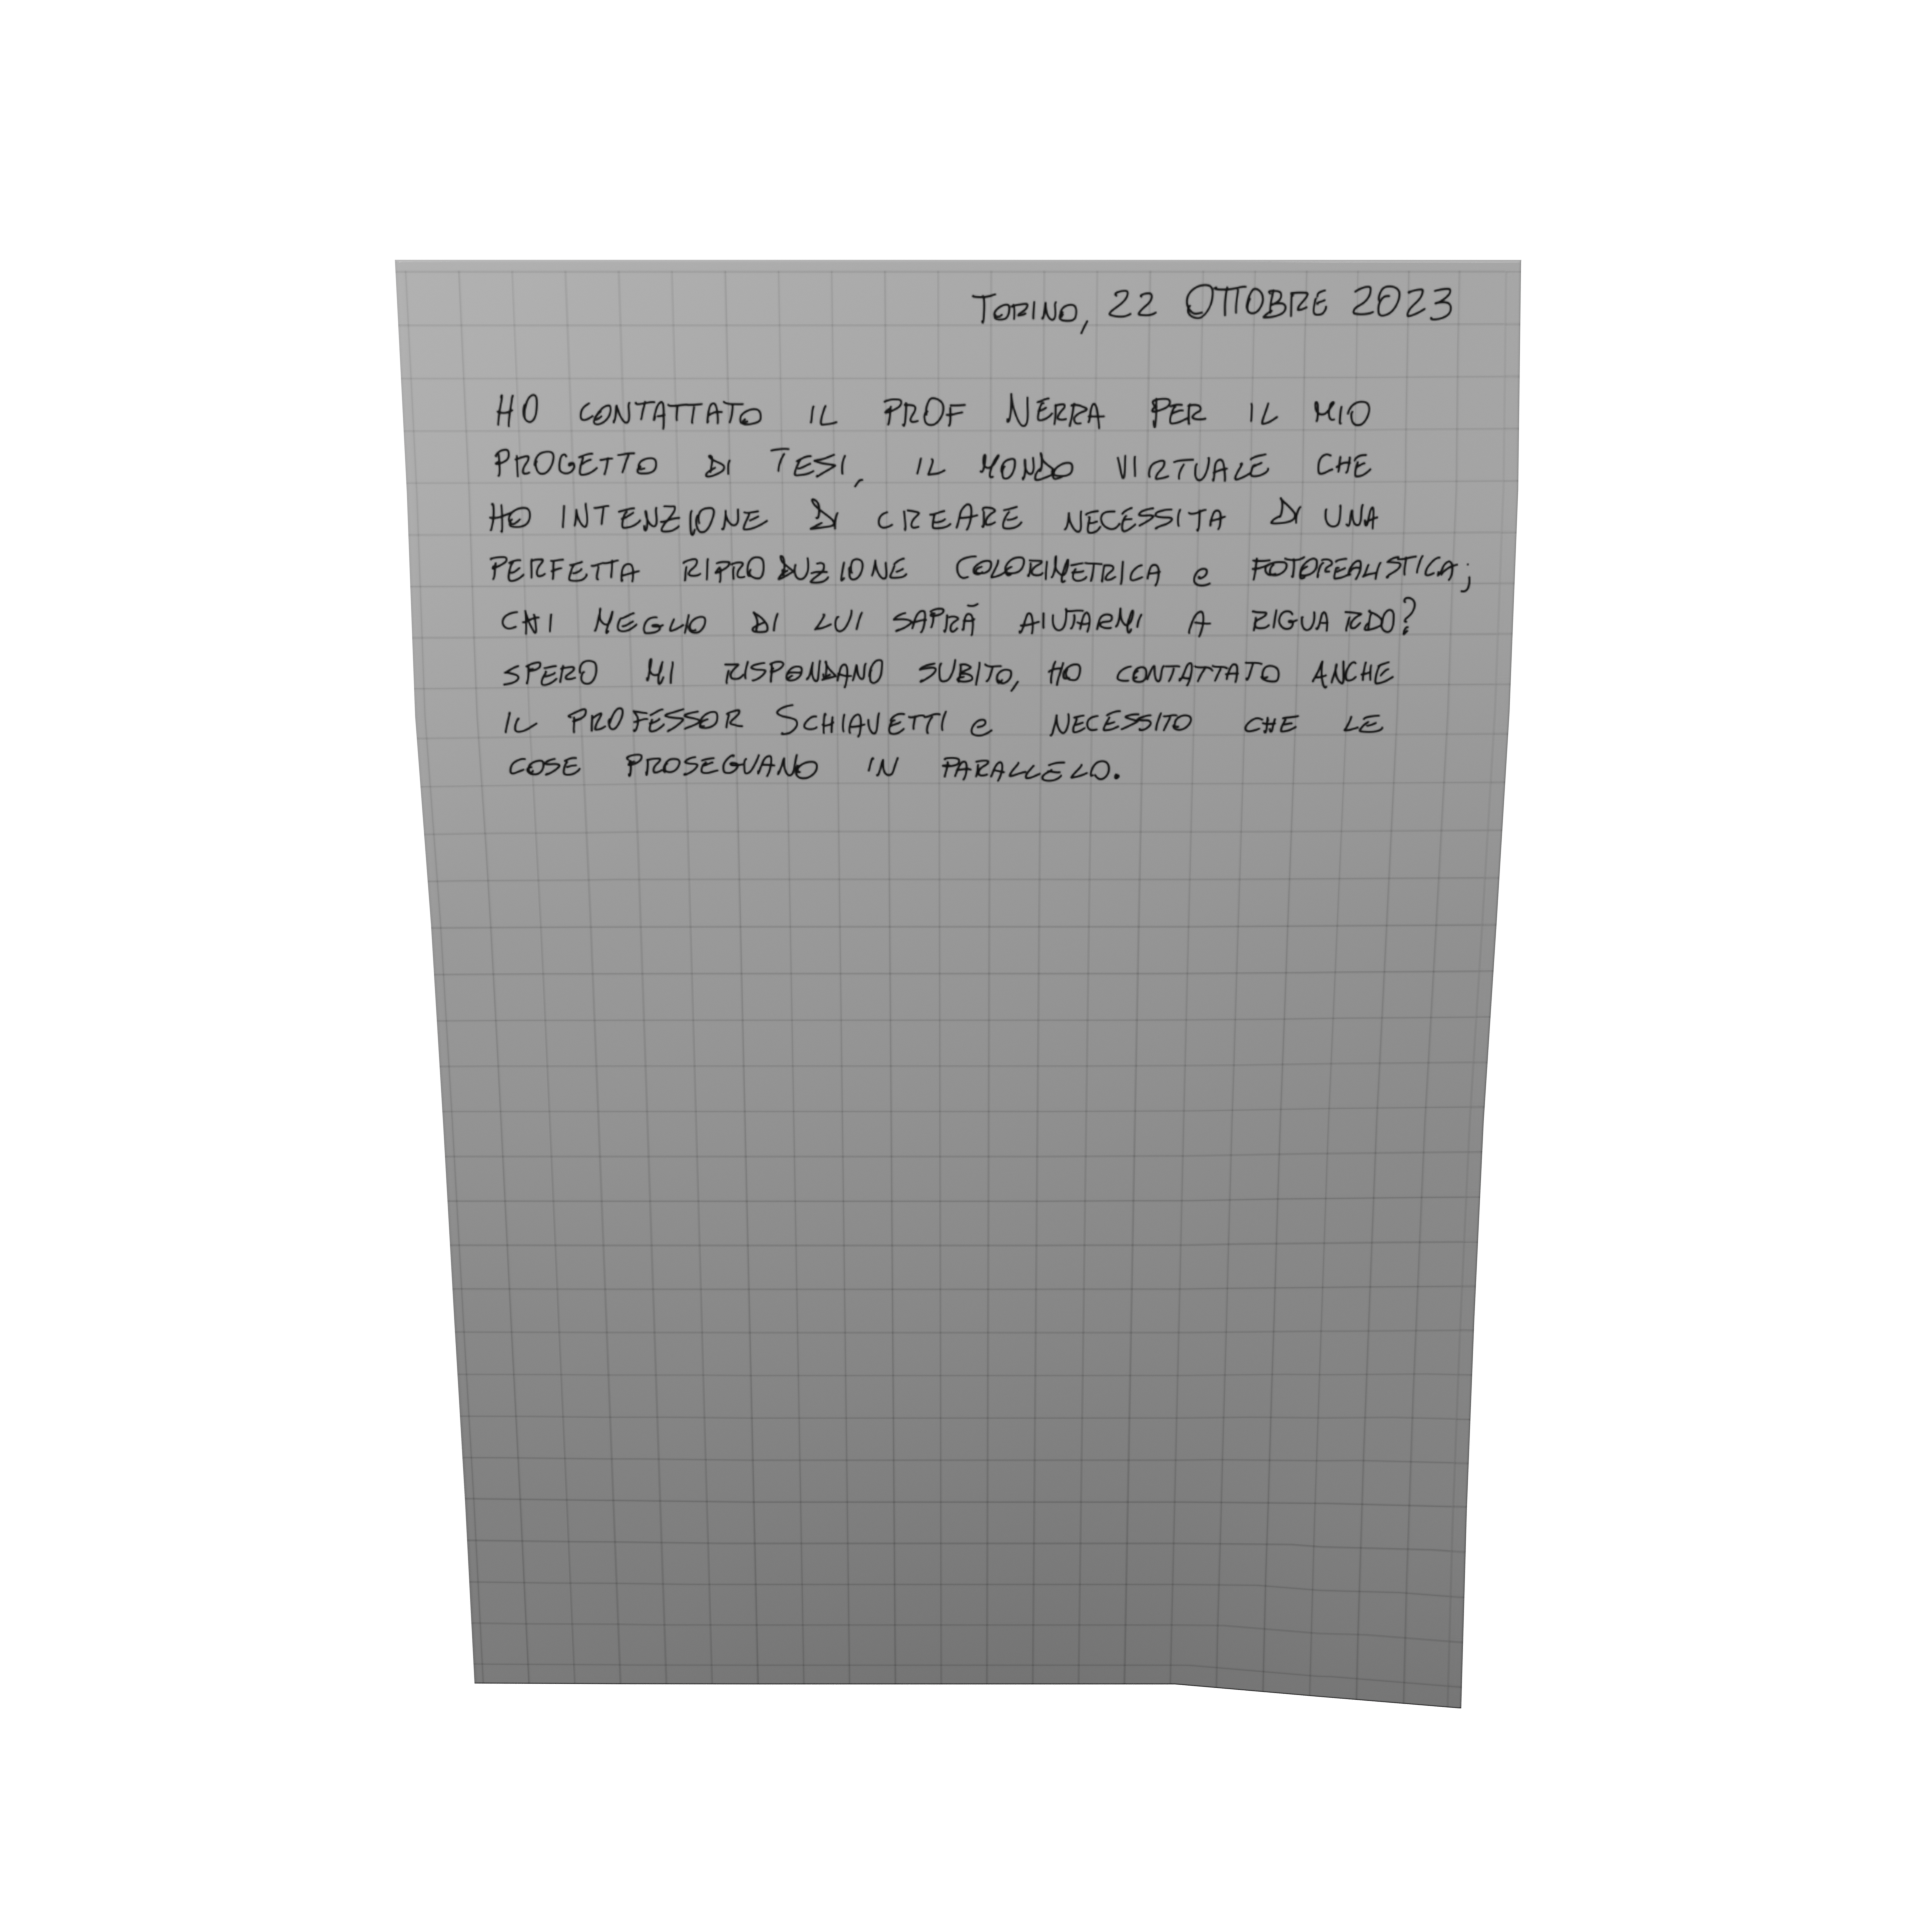 TORINO, 22 OTTOBRE 2023
HO CONTATTATO IL PROF NERRA PER IL MIO
PROGETTO DI TESI, IL MONDO VIRTUALE CHE
HO INTENZIONE DI CREARE NECESSITA DI UNA
PERFETTA RIPRODUZIONE COLORIMETRICA e FOTOREALISTICA;
CHI MEGLIO DI LUI SAPRÀ AIUTARMI A RIGUARDO?
SPERO MI RISPONDANO SUBITO, HO CONTATTATO ANCHE
IL PROFESSOR SCHIAVETTI e NECESSITO CHE LE
COSE PROSEGUANO IN PARALLELO.